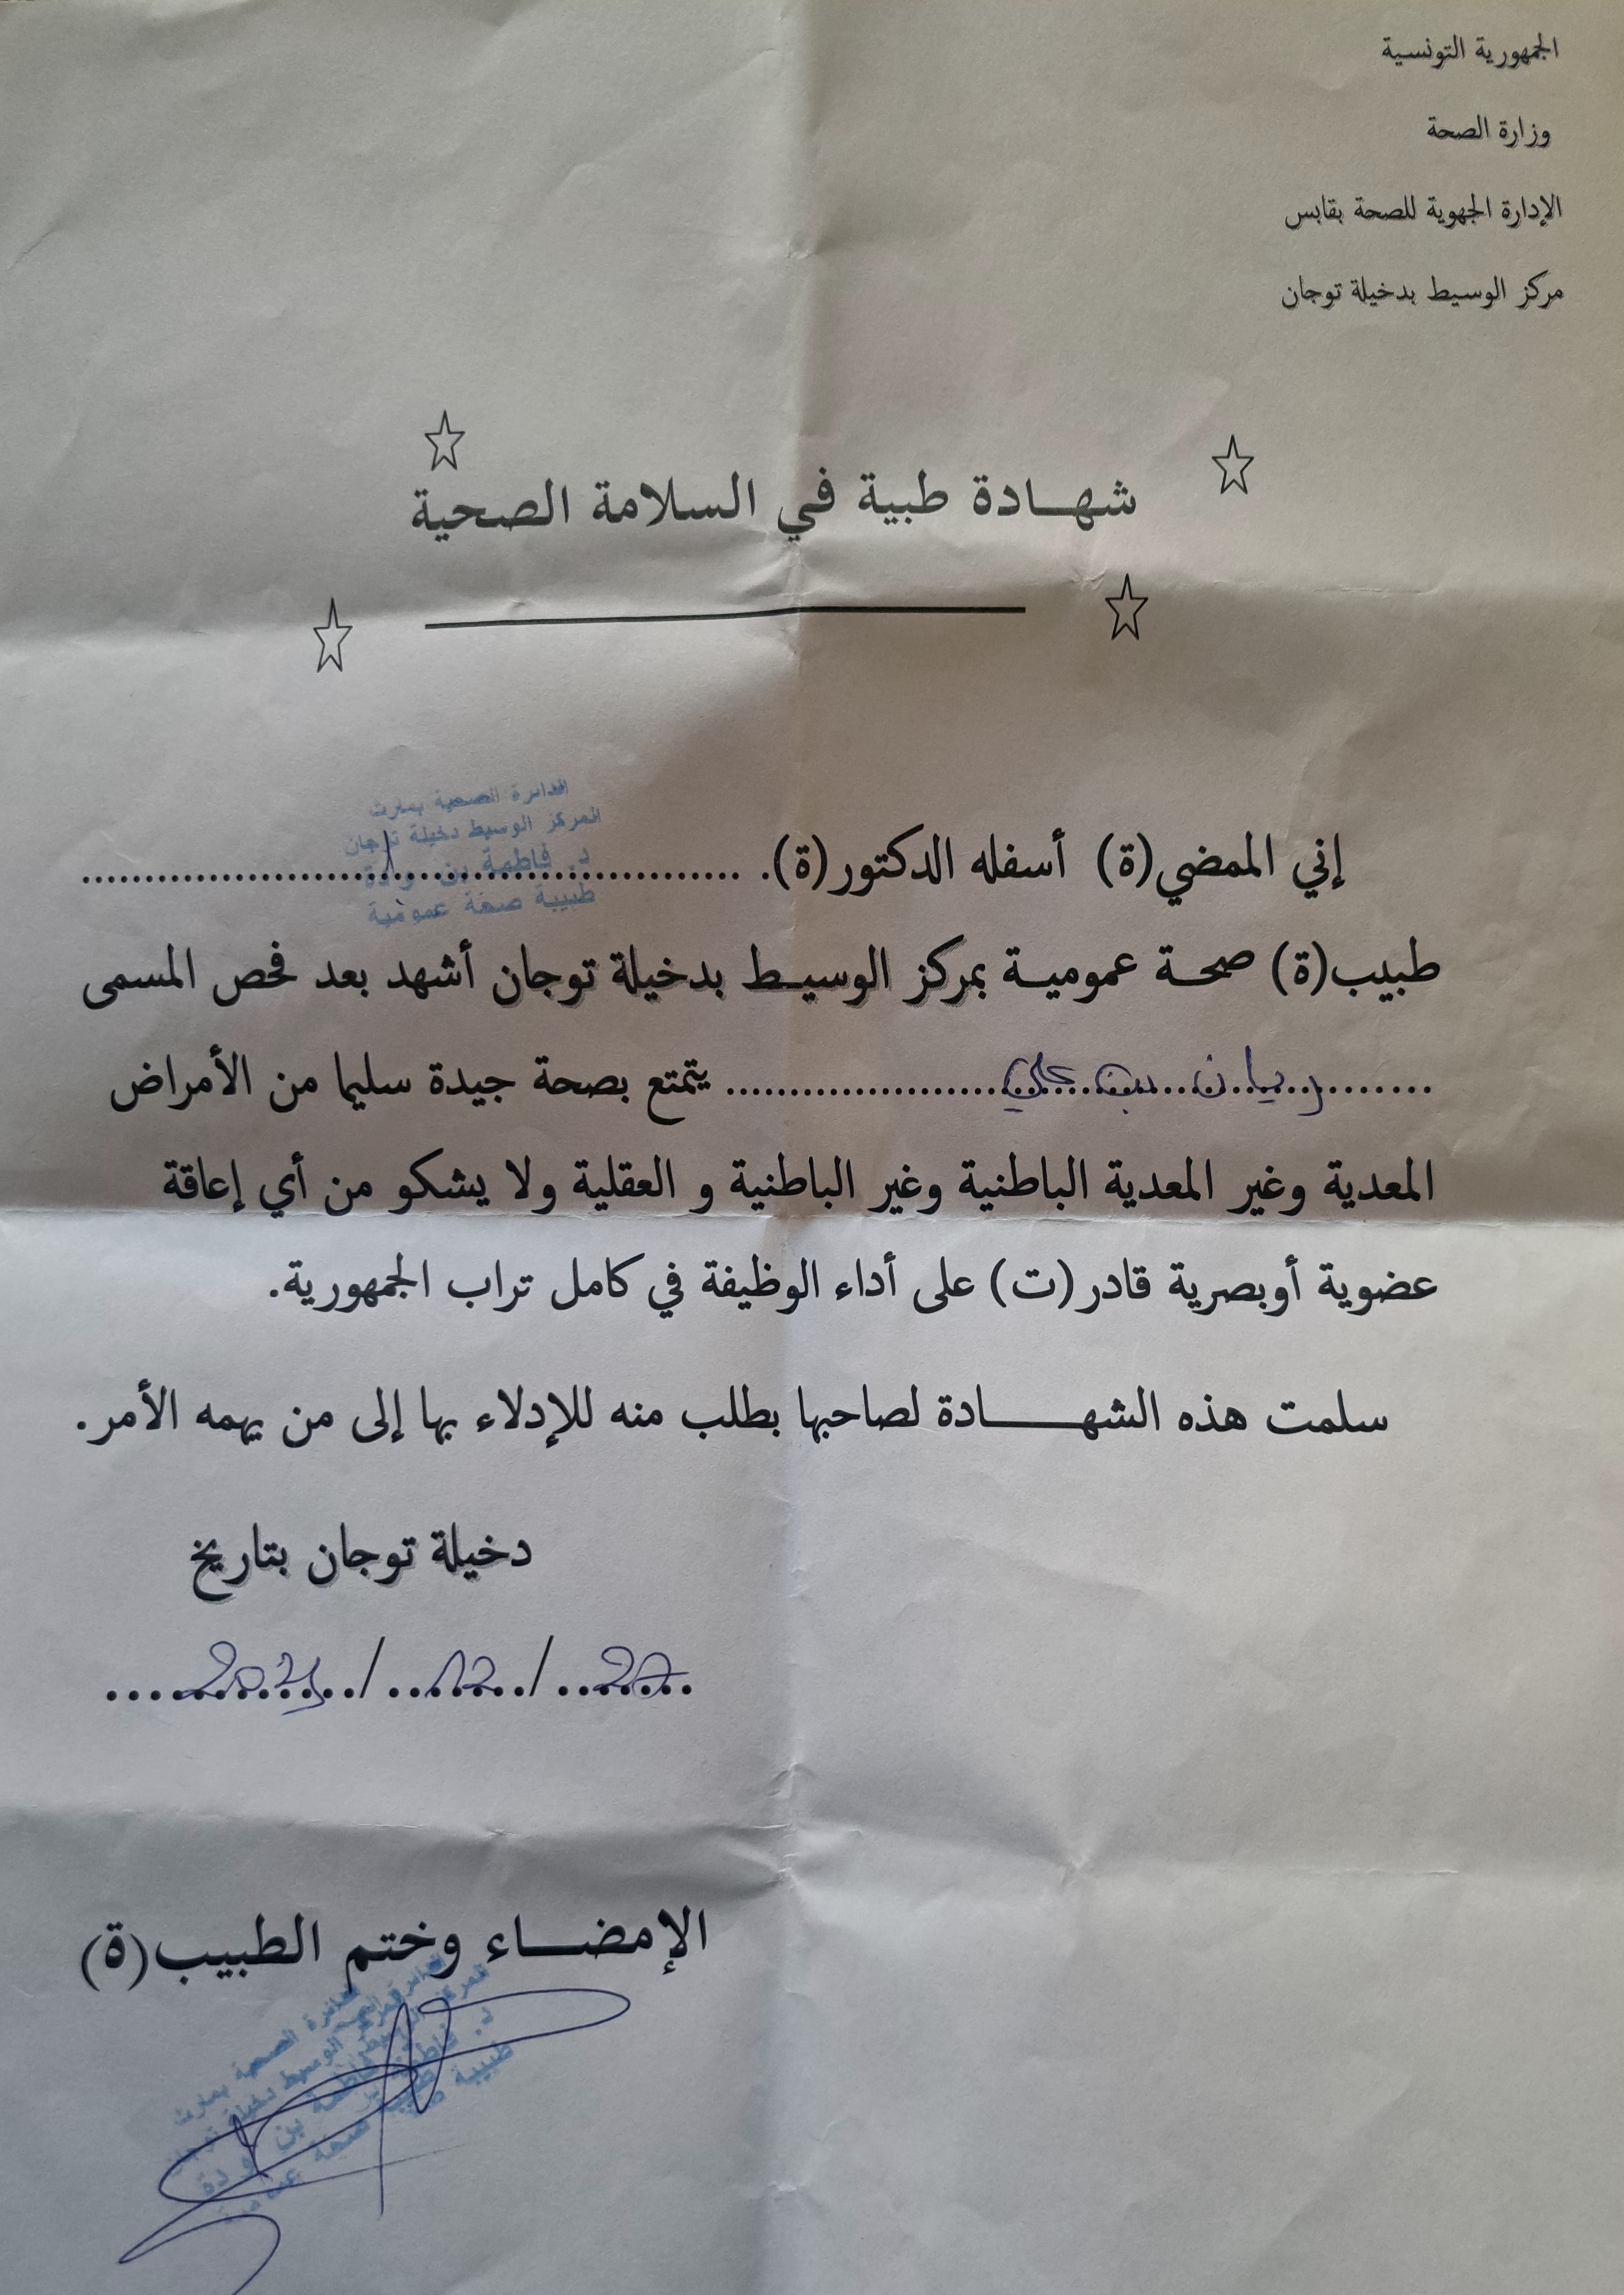 الجمهورية التونسية
وزارة الصحة
الإدارة الجهوية للصحة بقابس
مركز الوسيط بدخيلة توجان
شهـــادة طبية في السلامة الصحية
الدائرة الصحية بمارث
المركز الوسيط دخيلة توجان
د. فاطمة بن
طبيبة صحة عمومية
إني الممضي(ة) أسفله الدكتور(ة). ..................................................
طبيب(ة) صحـة عموميـة بمركز الوسيـط بدخيلة توجان أشهد بعد فحص المسمى
........ريان بن علي..................... يتمتع بصحة جيدة سليما من الأمراض
المعدية وغير المعدية الباطنية وغير الباطنية و العقلية ولا يشكو من أي إعاقة
عضوية أوبصرية قادر(ت) على أداء الوظيفة في كامل تراب الجمهورية.
سلمت هذه الشهــــــادة لصاحبها بطلب منه للإدلاء بها إلى من يهمه الأمر.
دخيلة توجان بتاريخ
/ 12 /
الإمضـــاء وختم الطبيب(ة)
الدائرة الصحية بمارث